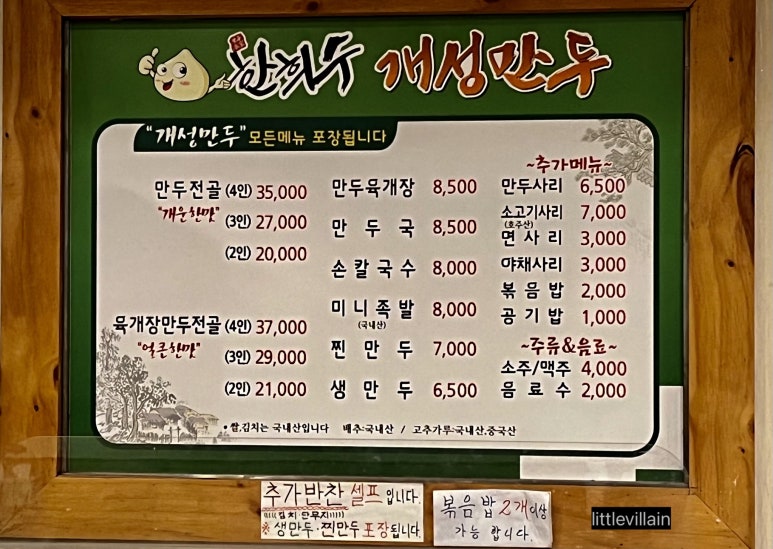 한희두 개성만두
"개성만두" 모든메뉴 포장됩니다
만두전골 (4인) 35,000
"개운한맛" (3인) 27,000
(2인) 20,000
육개장만두전골 (4인) 37,000
"얼큰한맛" (3인) 29,000
(2인) 21,000
만두육개장 8,500
만두국 8,500
손칼국수 8,000
미니족발 8,000
(국내산)
찐만두 7,000
생만두 6,500
~추가메뉴~
만두사리 6,500
소고기사리 7,000
(호주산)
면사리 3,000
야채사리 3,000
볶음밥 2,000
공기밥 1,000
~주류&음료~
소주/맥주 4,000
음료수 2,000
• 쌀,김치는 국내산입니다 배추:국내산 / 고추가루:국내산,중국산
추가반찬 셀프입니다.
((((김치·단무지)))))
※ 생만두·찐만두 포장됩니다.
볶음밥 2개이상
가능합니다.
littlevillain